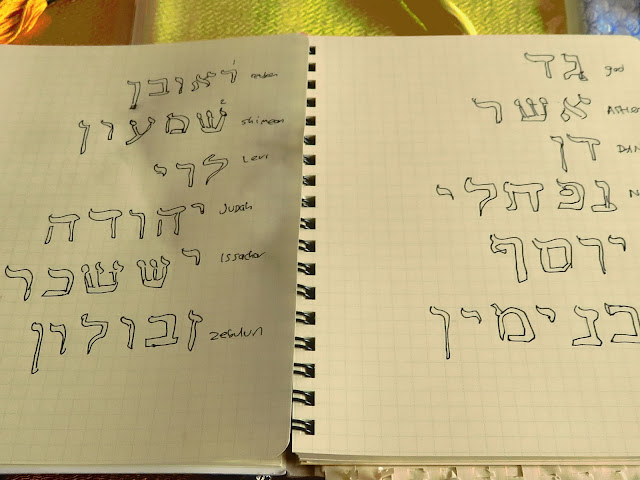 ראובן reuben
שמעון shimeon
לוי Levi
יהודה Judah
יששכר Issachar
זבולון Zebulun
גד gad
אשר
דן DAN
נפתלי N
יוסף
בנימין